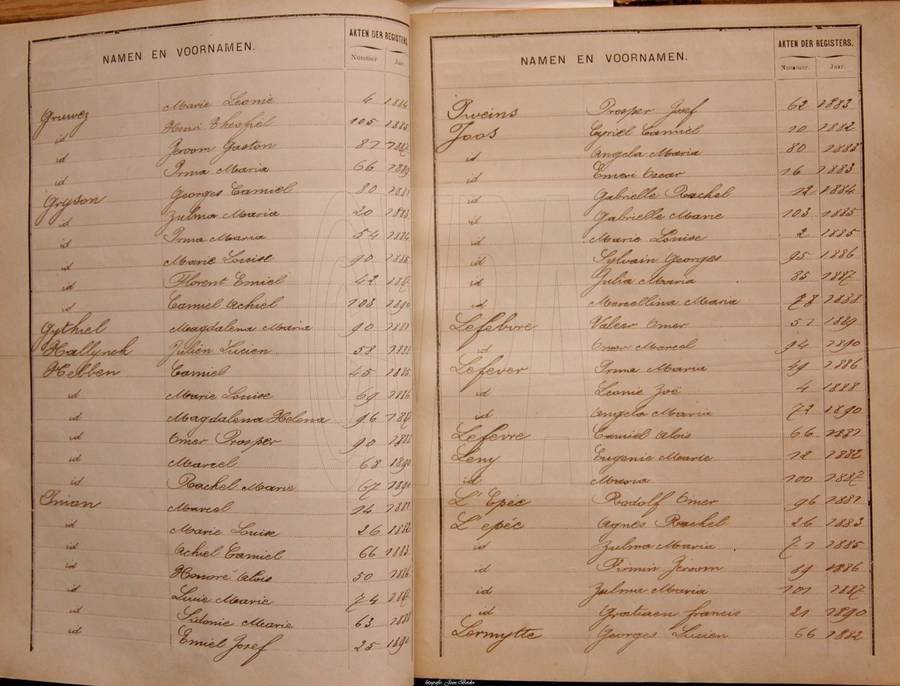 NAMEN EN VOORNAMEN. AKTEN DER REGISTERS
Nummer Jaar
Gruwez Marie Leonie 4 1884
id Henri Theofiel 105
id Jeroom Gaston 87 1887
id Irma Maria 66
Gryson Georges Camiel 80 1881
id Zulma Maria 20 1883
id Irma Maria 54 1884
id Marie Louise 90
id Florent Emiel 42
id Camiel Achiel 103 1890
Gythiel Magdalena Marie 90 1881
Hallynck Julien Lucien 58
Hebben Camiel 45
id Marie Louise 69 1886
id Magdalena Helena 96 1887
id Omer Prosper 90 1888
id Marcel 68 1890
id Rachel Marie 67 1890
Iman Marcel 14 1881
id Marie Louise 26 1882
id Achiel Camiel 66 1883
id Honoré Alois 50 1886
id Lucie Marie 74 1887
id Sidonie Marie 63 1888
id Emiel Josef 25 1890
NAMEN EN VOORNAMEN. AKTEN DER REGISTERS.
Nummer. Jaar.
Iweins Prosper Josef 62 1883
Joos Cyriel Camiel 10 1882
id Angela Maria 80 1883
id Emeri Oscar 16 1883
id Gabrielle Rachel 12 1884
id Gabrielle Marie 103 1885
id Marie Louise 2 1885
id Sylvain Georges 95 1886
id Julia Maria 35 1887
id Marcellina Maria 78 1888
Lefebvre Valeer Omer 51 1889
id Omer Marcel 94 1890
Lefever Irma Maria 49 1886
id Leonie Zoë 4 1888
id Angela Maria 72 1890
Lefevre Camiel Alois 66 1881
Leny Eugenie Marie 18 1882
id Maria 100 1887
L'Epée Rodolf Omer 96 1881
L'epée Agnes Rachel 26 1883
id Zulma Maria 71 1885
id Firmin Jeroom 89 1886
id Zulma Maria 101 1887
id Gratiaen francis 21 1890
Lermytte Georges Lucien 66 1882